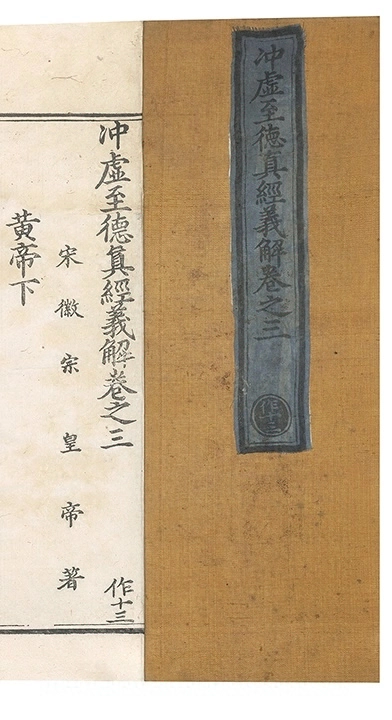 冲虛至徳真經義解卷之三
作十三
冲虛至德真經義解卷之三
作十三
宋徽宗皇帝著
黄帝下